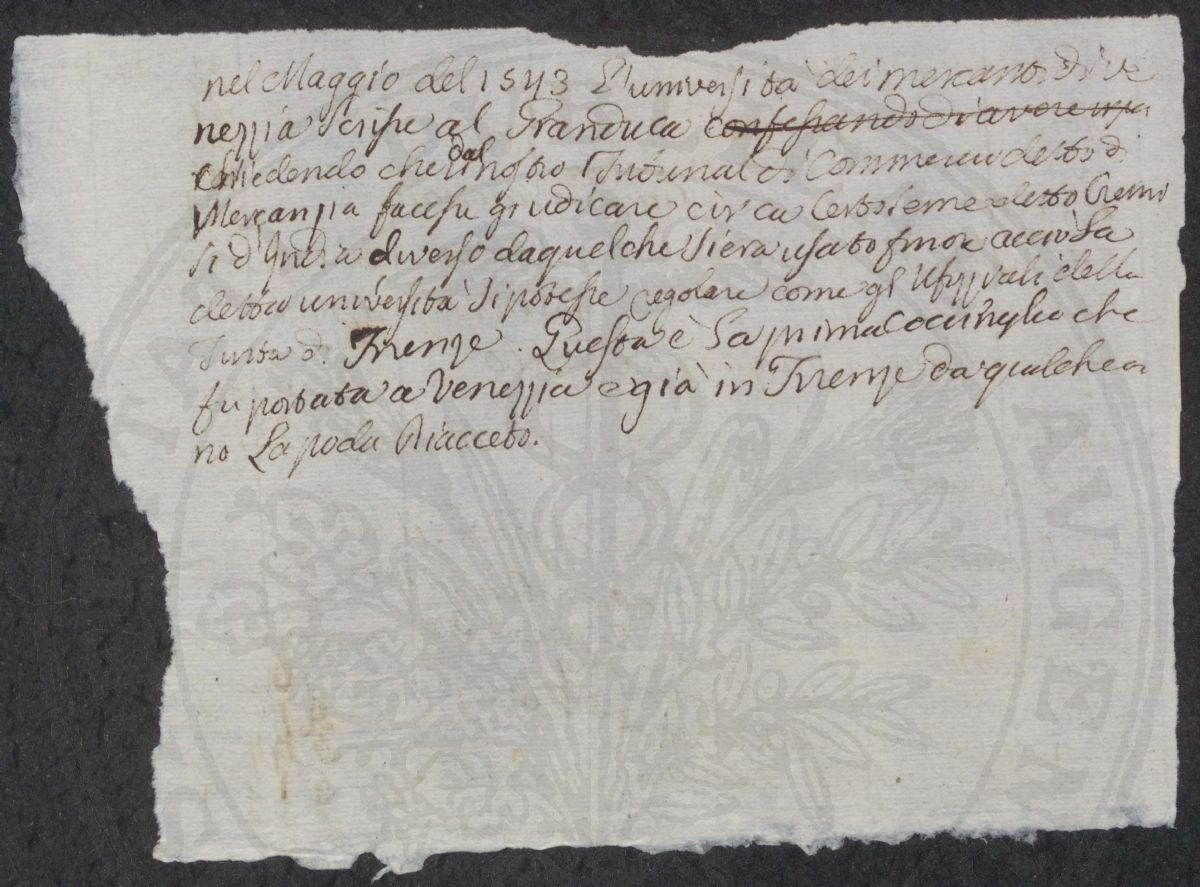 nel Maggio del 1543 L'università dei mercanti di Ve
nezzia scrisse al Granduca confessando di avere
chiedendo che dal nostro Tribunal di Commercio detto di
Mercanzia facesse giudicare circa certo seme detto Cremi
si d'India diverso da quel che si era usato finora acciò La
detta università si potesse regolare come gl'Ufizziali della
di Firenze. Questa è La prima Cocciniglia che
fu portata a Venezzia e già in Firenze da qualche an
no La poda Riacceto.